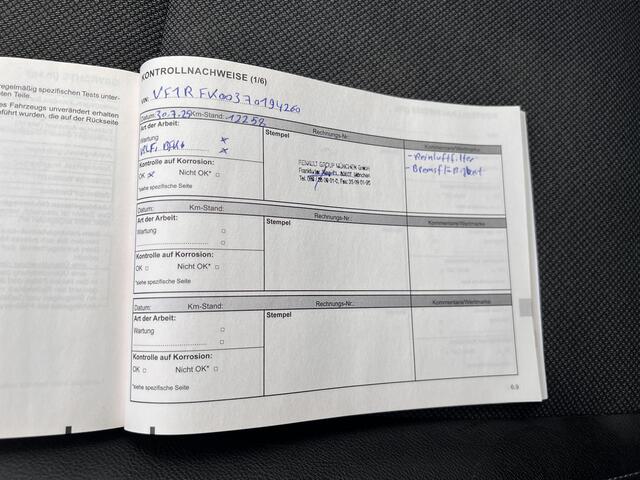 regelmäßig spezifischen Tests unter-
ten Teile.
es Fahrzeugs unverändert erhalten
eführt wurden, die auf der Rückseite
KONTROLLNACHWEISE (1/6)
VIN: VF1RFK00370194260
Datum: 30.7.25 Km-Stand: 12258 Rechnungs-Nr.: Kommentare/Wertmarke
Art der Arbeit: Stempel
Wartung x
x
Kontrolle auf Korrosion:
OK x Nicht OK* □
*siehe spezifische Seite
RENAULT GROUP MÜNCHEN GmbH
- Reinluftfilter
- Bremsflüssigkeit
Datum: Km-Stand: Rechnungs-Nr.: Kommentare/Wertmarke
Art der Arbeit: Stempel
Wartung □
□
Kontrolle auf Korrosion:
OK □ Nicht OK* □
*siehe spezifische Seite
Datum: Km-Stand: Rechnungs-Nr.: Kommentare/Wertmarke
Art der Arbeit: Stempel
Wartung □
□
Kontrolle auf Korrosion:
OK □ Nicht OK* □
*siehe spezifische Seite
6.9